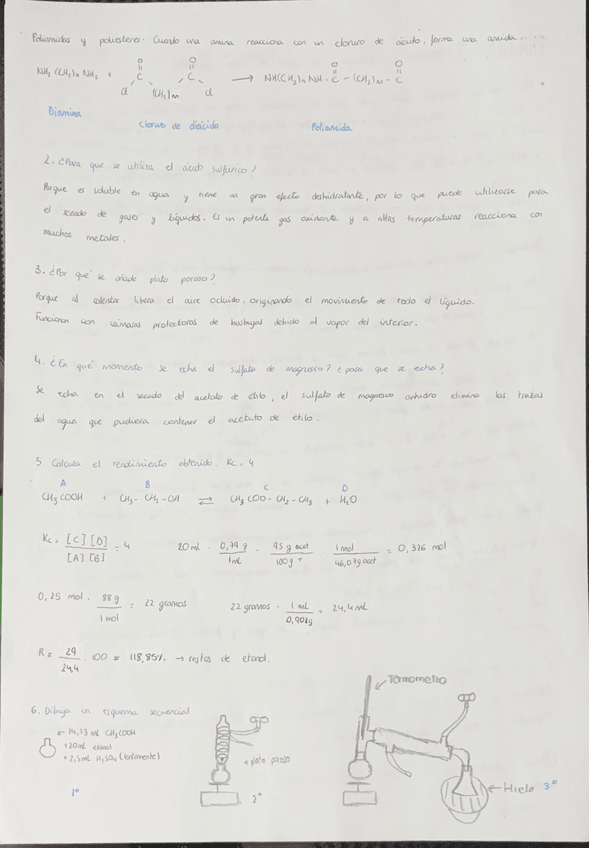 Poliamidas y poliesteres. Cuando una amina reacciona con un cloruro de ácido, forma una amida....
O O O O
NH2 (CH2)n NH2 + C C → NH(CH2)n NH - C - (CH2)m - C
cl (CH2)m cl
Diamina
Cloruro de diácido Poliamida
2. ¿Para que se utiliza el ácido sulfúrico?
Porque es soluble en agua y tiene un gran efecto deshidratante, por lo que puede utilizarse para
el secado de gases y líquidos. Es un potente gas oxidante y a altas temperaturas reacciona con
muchos metales.
3. ¿Por qué se añade plato poroso?
Porque al calentar libera el aire ocluido, originando el movimiento de todo el líquido.
Funcionan con cámaras protectoras de burbujas debido al vapor del interior.
4. ¿En qué momento se echa el sulfato de magnesio? ¿para que se echa?
Se echa en el secado del acetato de etilo, el sulfato de magnesio anhidro elimina las trazas
del agua que pudiera contener el acetato de etilo.
5. Calcula el rendimiento obtenido. Kc = 4
A B C D
CH3COOH + CH3 - CH2 - OH ⇌ CH3COO - CH2 - CH3 + H2O
Kc = [C][D] / [A][B] = 4 20 mL · 0,79 g / 1 mL · 95 g / 100 g · 1 mol / 46,07 g = 0,326 mol
0,25 mol · 88 g / 1 mol = 22 gramos 22 gramos · 1 mL / 0,902g = 24,4 mL
R = 29 / 24,4 · 100 = 118,85% → restos de etanol.
Termometro
6. Dibuja un esquema secuencial
← 14,33 mL CH3COOH
+ 20mL etanol
+ 2,5mL H2SO4 (lentamente)
+ plato poroso
← Hielo
1º 2º 3º